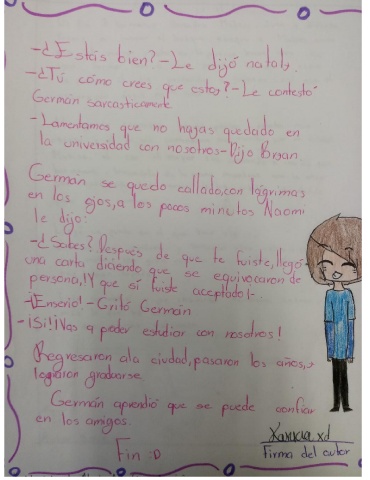 -¿Estás bien?-Le dijó nataly.
-¿Tú cómo crees que estoy?-Le contestó
Germán sarcasticamente
-Lamentamos que no hayas quedado en
la universidad con nosotros-Dijo Bryan
Germán se quedo callado,con lágrimas
en los ojos,a los pocos minutos Naomi
le dijo:
-¿Sabes?Después de que te fuiste,llegó
una carta diciendo que se equivocaron de
persona,¡Y que sí fuiste aceptado!-
-¡Enserio!-Gritó Germán
-¡Si!¡Vas a poder estudiar con nosotros!
Regresaron ala ciudad,pasaron los años,y
lograron graduarse
Germán aprendió que se puede confiar
en los amigos.
Fin :D
xd
Firma del autor